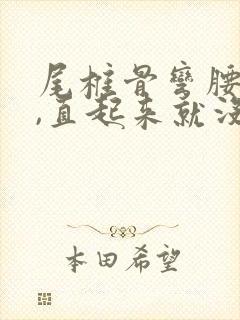 尾椎骨弯腰
,直起来就没
本田希望